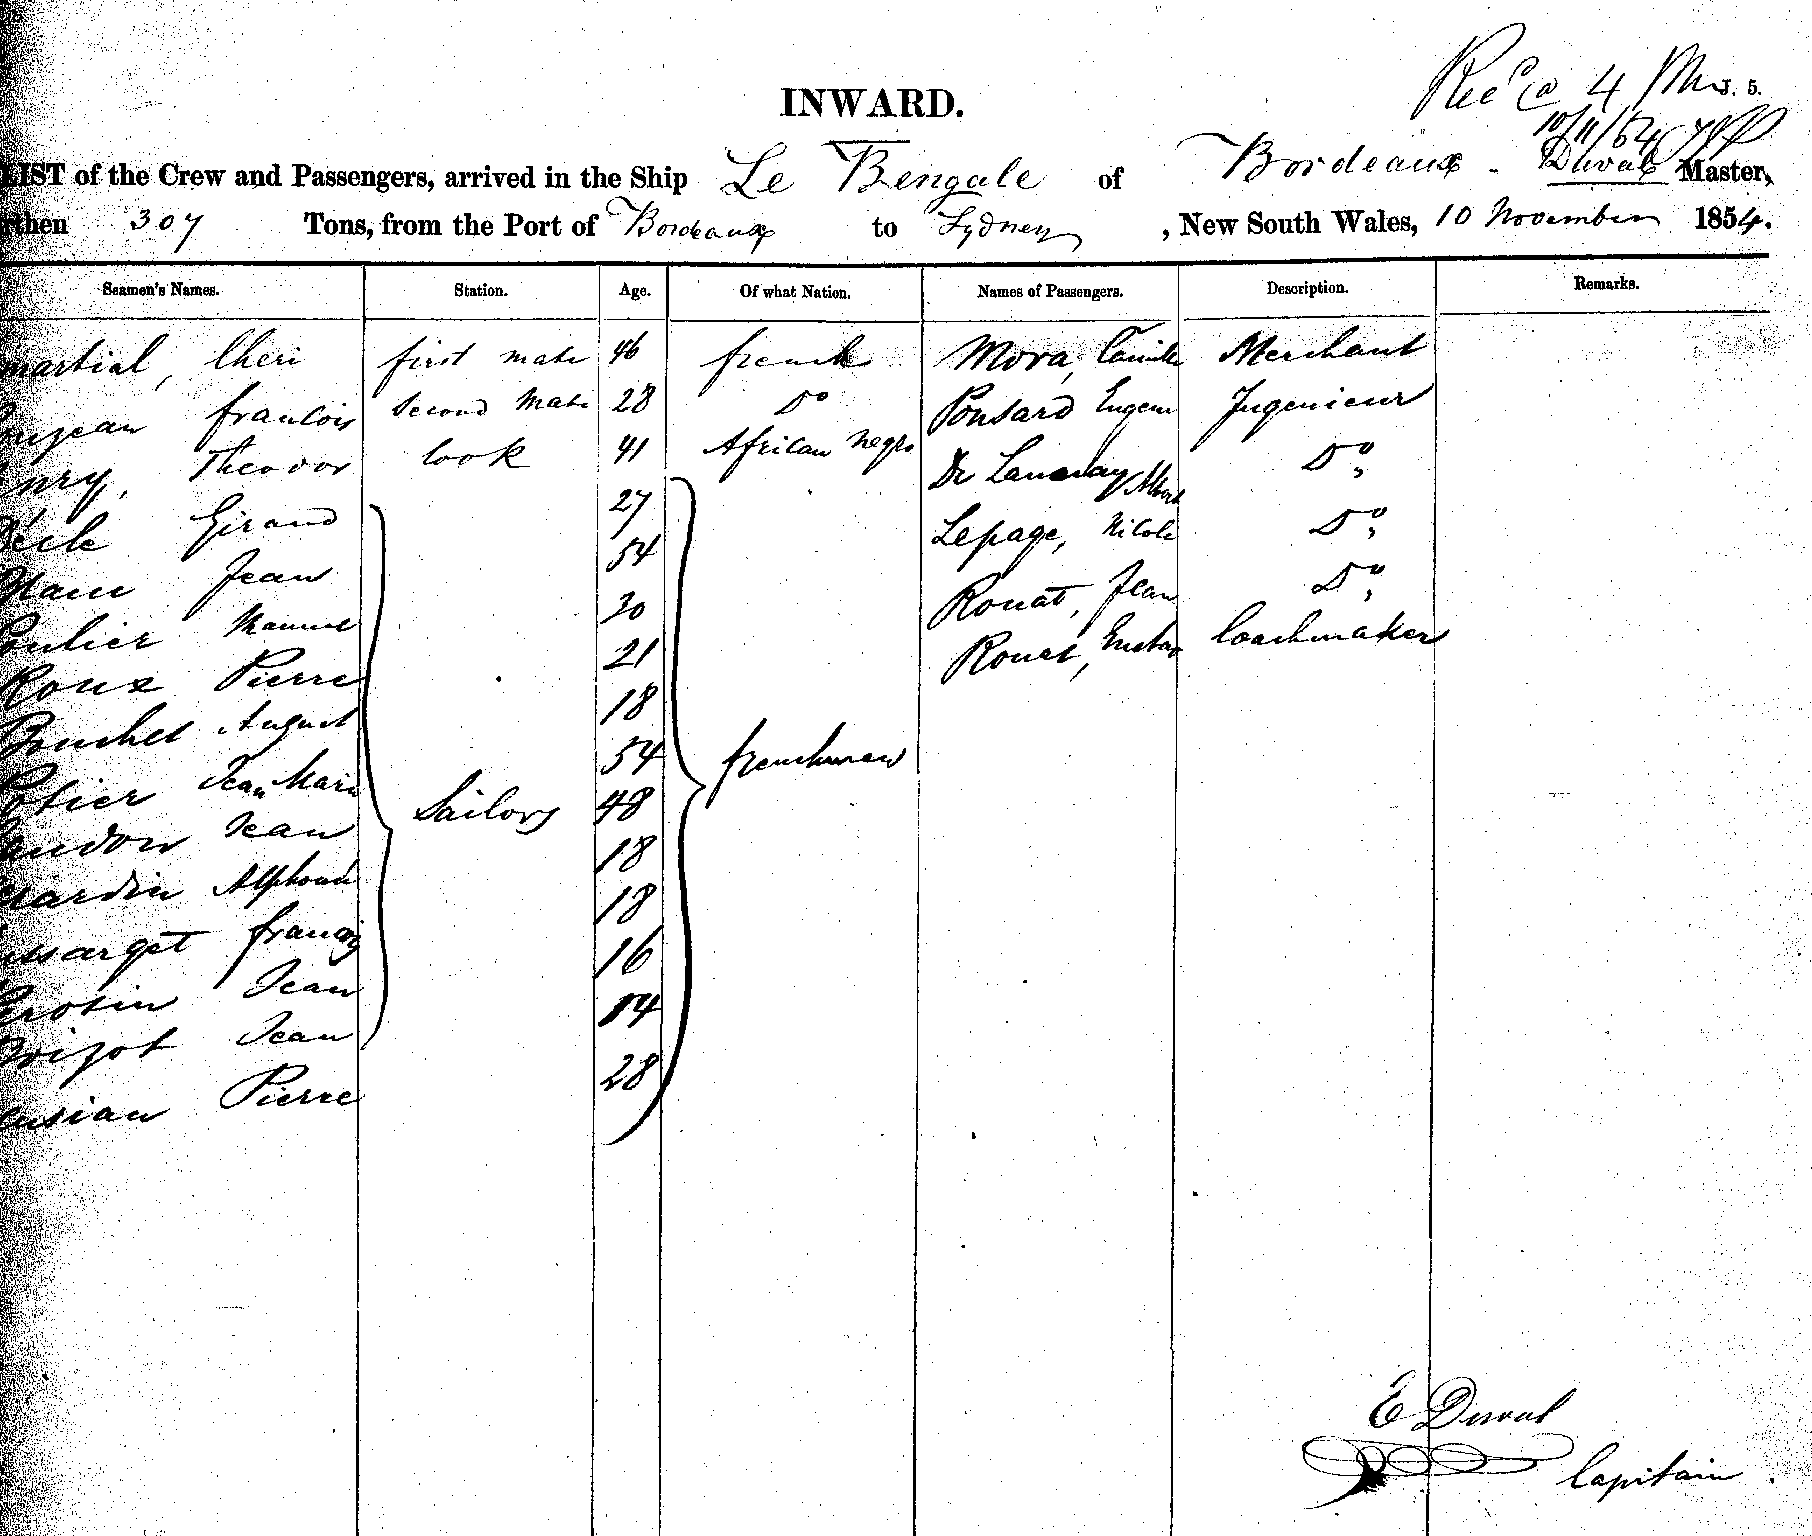 Rec@ 4 Pm J. 5.
10/11/54
INWARD.
LIST of the Crew and Passengers, arrived in the Ship Le Bengale of Bordeaux - Duval Master,
rthen 307 Tons, from the Port of Bordeaux to Sydney, New South Wales, 10 November 1854.
Seamen's Names. Station. Age. Of what Nation. Names of Passengers. Description. Remarks.
martial, Cheri first mate 46 french Mora, Camille Merchant
francois Second Mate 28 Do Ponsard Eugene Ingenieur
Theodor Cook 41 African Negro De Launay Albert Do,
Girand 27 Lepage, Nicole Do,
Jean 54 Rouat, Jean Do,
Manuel 20 Rouet, Gustav Coachmaker
Roux Pierre 21
Bouchet August 18
Potier Jean Marie 54 frenchmen
Jean Sailors 48
Jardin Alphonse 18
francois 18
Jean 16
Jean 14
Pierre 28
E Duval
Capitain